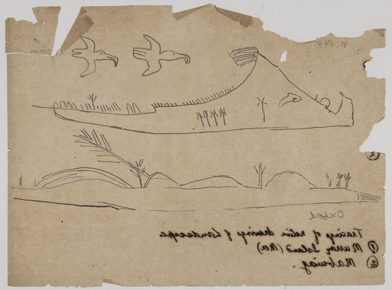 Oxford
Tracing of native drawing of Landscape.
① Murray Island (Mer)
② Mabuiag.
2